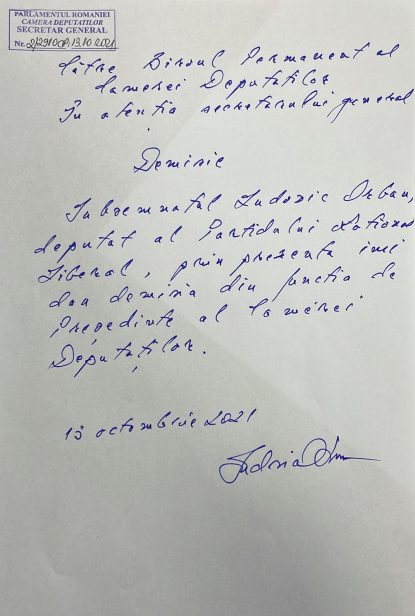 PARLAMENTUL ROMANIEI
CAMERA DEPUTATILOR
SECRETAR GENERAL
Nr. 2/2910 13.10.2021
Către Biroul Permanent al
Camerei Deputaților
În atenția secretarului general
Demisie
Subsemnatul Ludovic Orban,
deputat al Partidului National
Liberal, prin prezenta imi
dau demisia din functia de
Președinte al Camerei
Deputaților.
13 octombrie 2021
Ludovic Orban